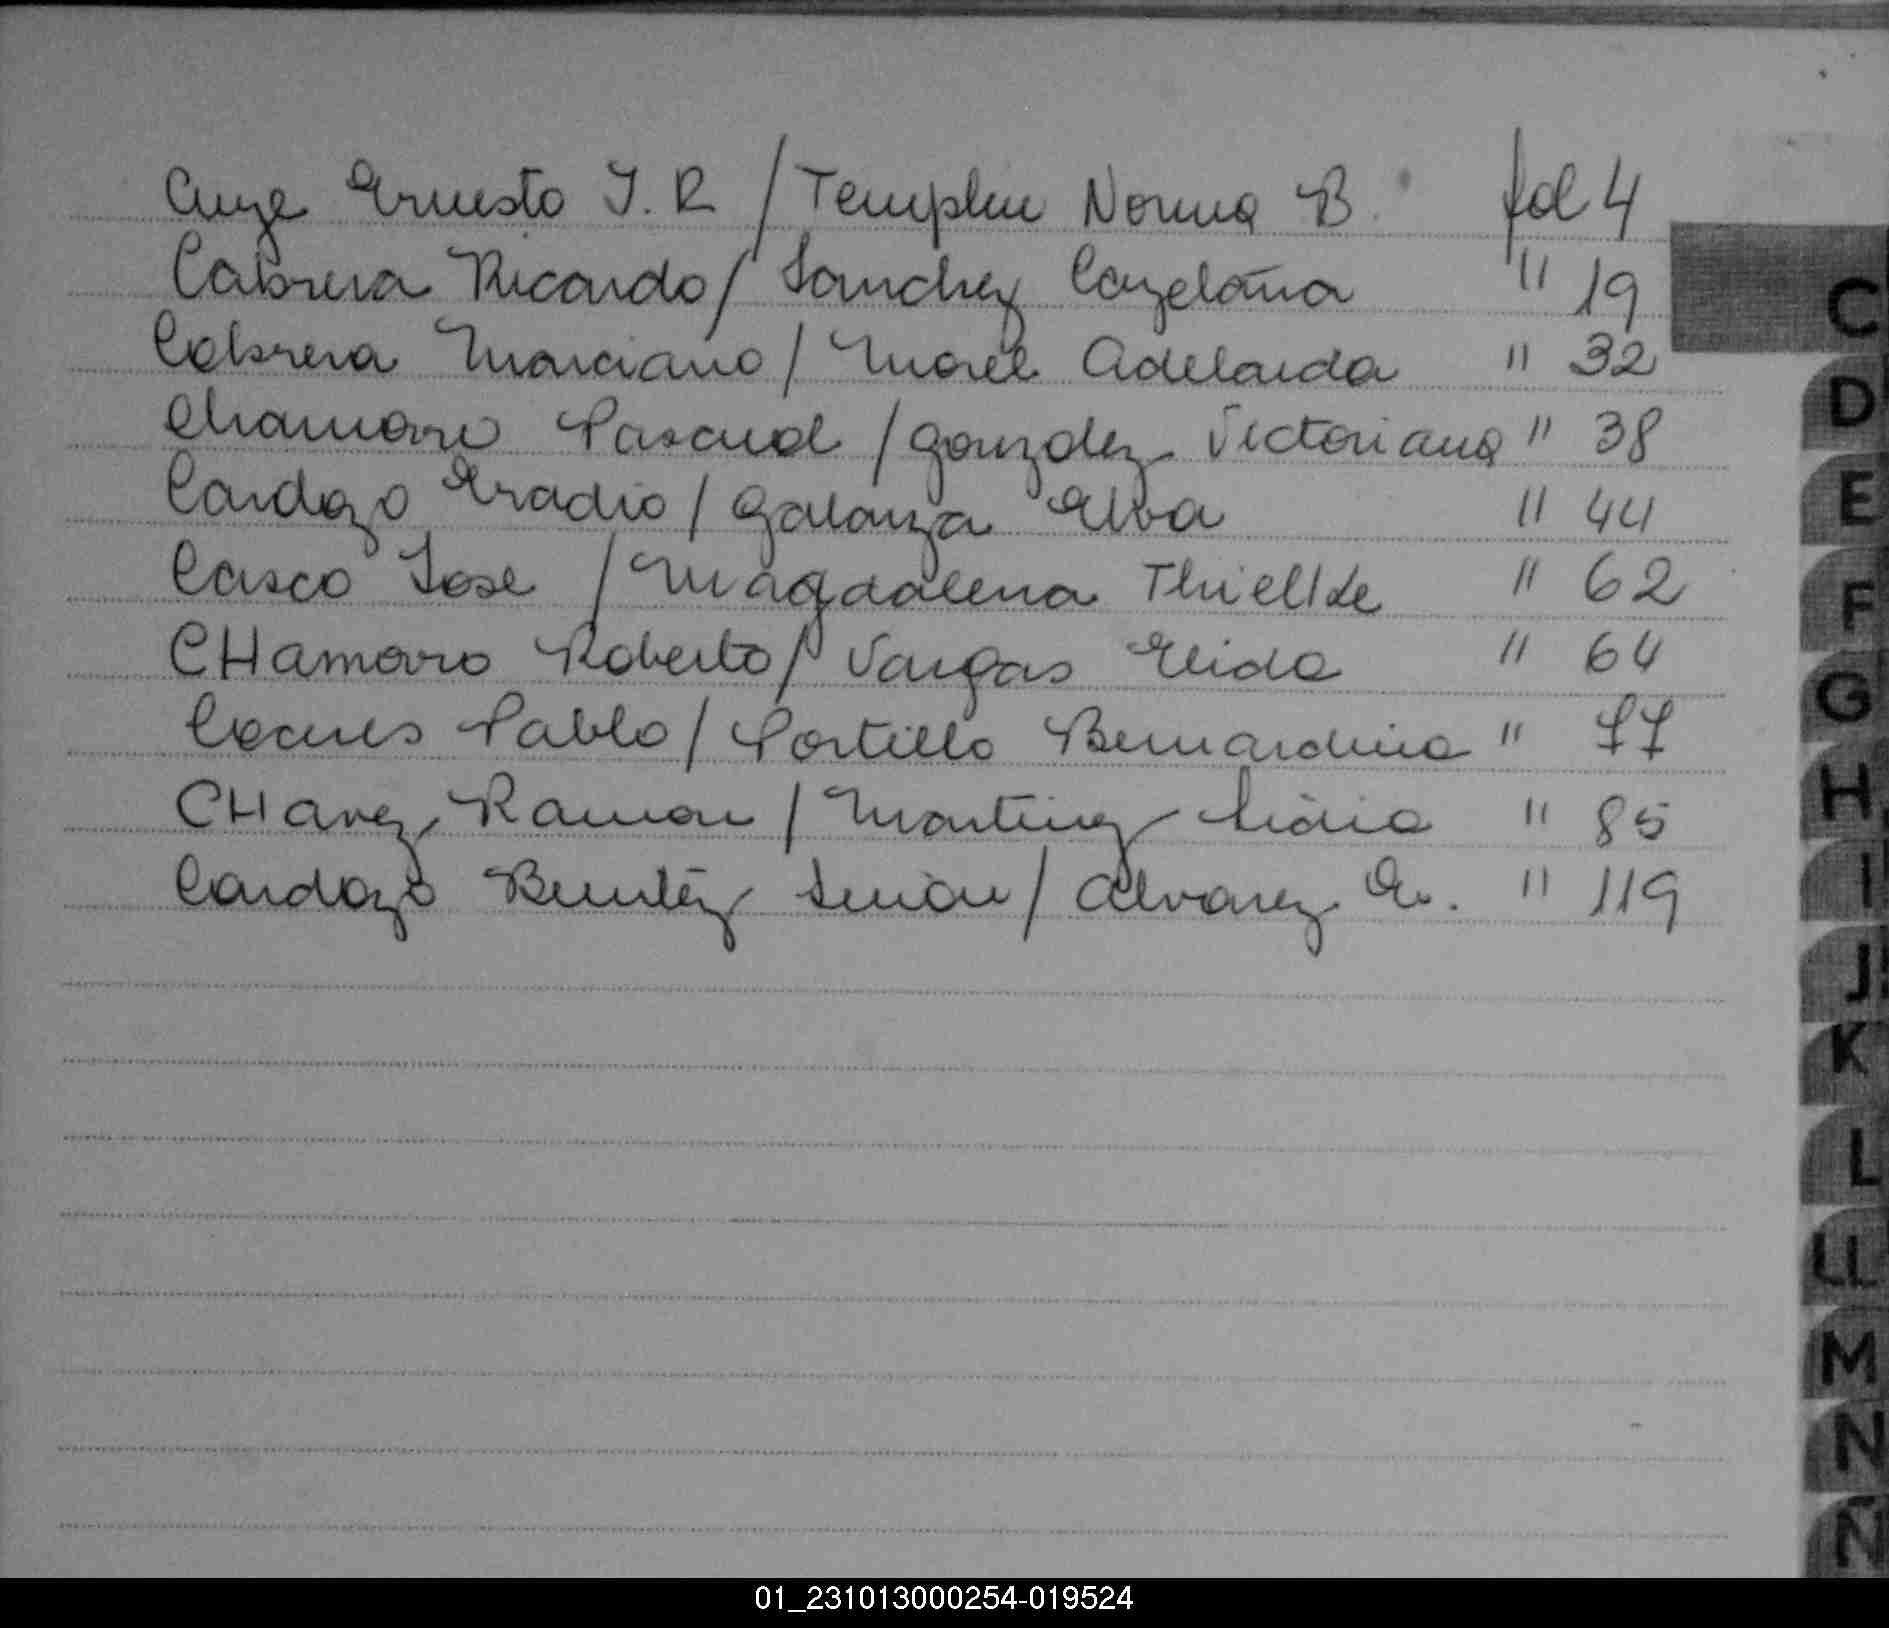 Cuye Ernesto J. R / Templen Norma B. fol 4
Cabrera Ricardo / Sanchez Cayetana " 19
Cabrera Marciano / Morel Adelaida " 32
Chamorro Pascual / Gonzalez Victoriana " 38
Cardozo Eradio / Galarza Elva " 44
Casco Jose / Magdalena Thielke " 62
CHamorro Roberto / Vargas Elida " 64
Pablo / Portillo Bernardina " 77
CHavez Ramon / Martinez Lidia " 85
Cardozo Benitez Simón / Alvarez E. " 119
C
D
E
F
G
H
I
J
K
L
LL
M
N
Ñ
01_231013000254-019524